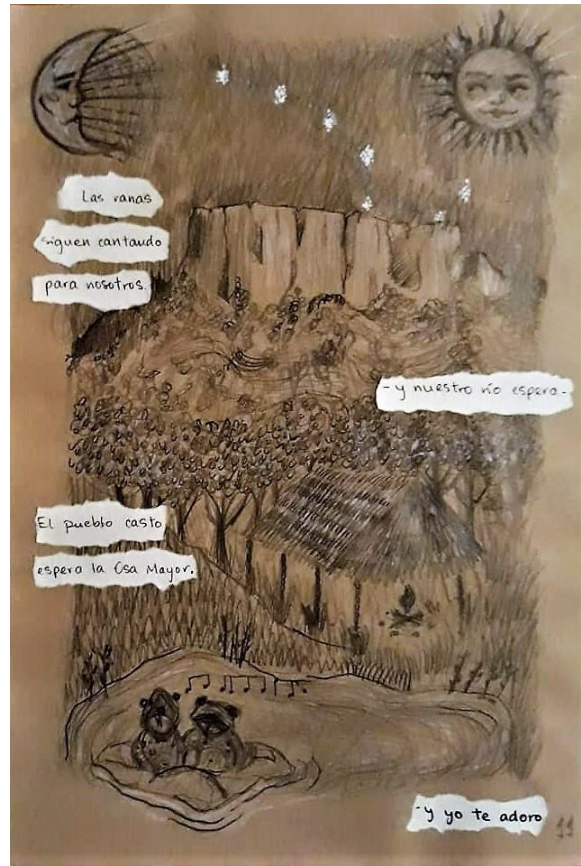 Las ranas
siguen cantando
para nosotros.
- y nuestro río espera-
El pueblo casto
espera la Osa Mayor.
-y yo te adoro
11